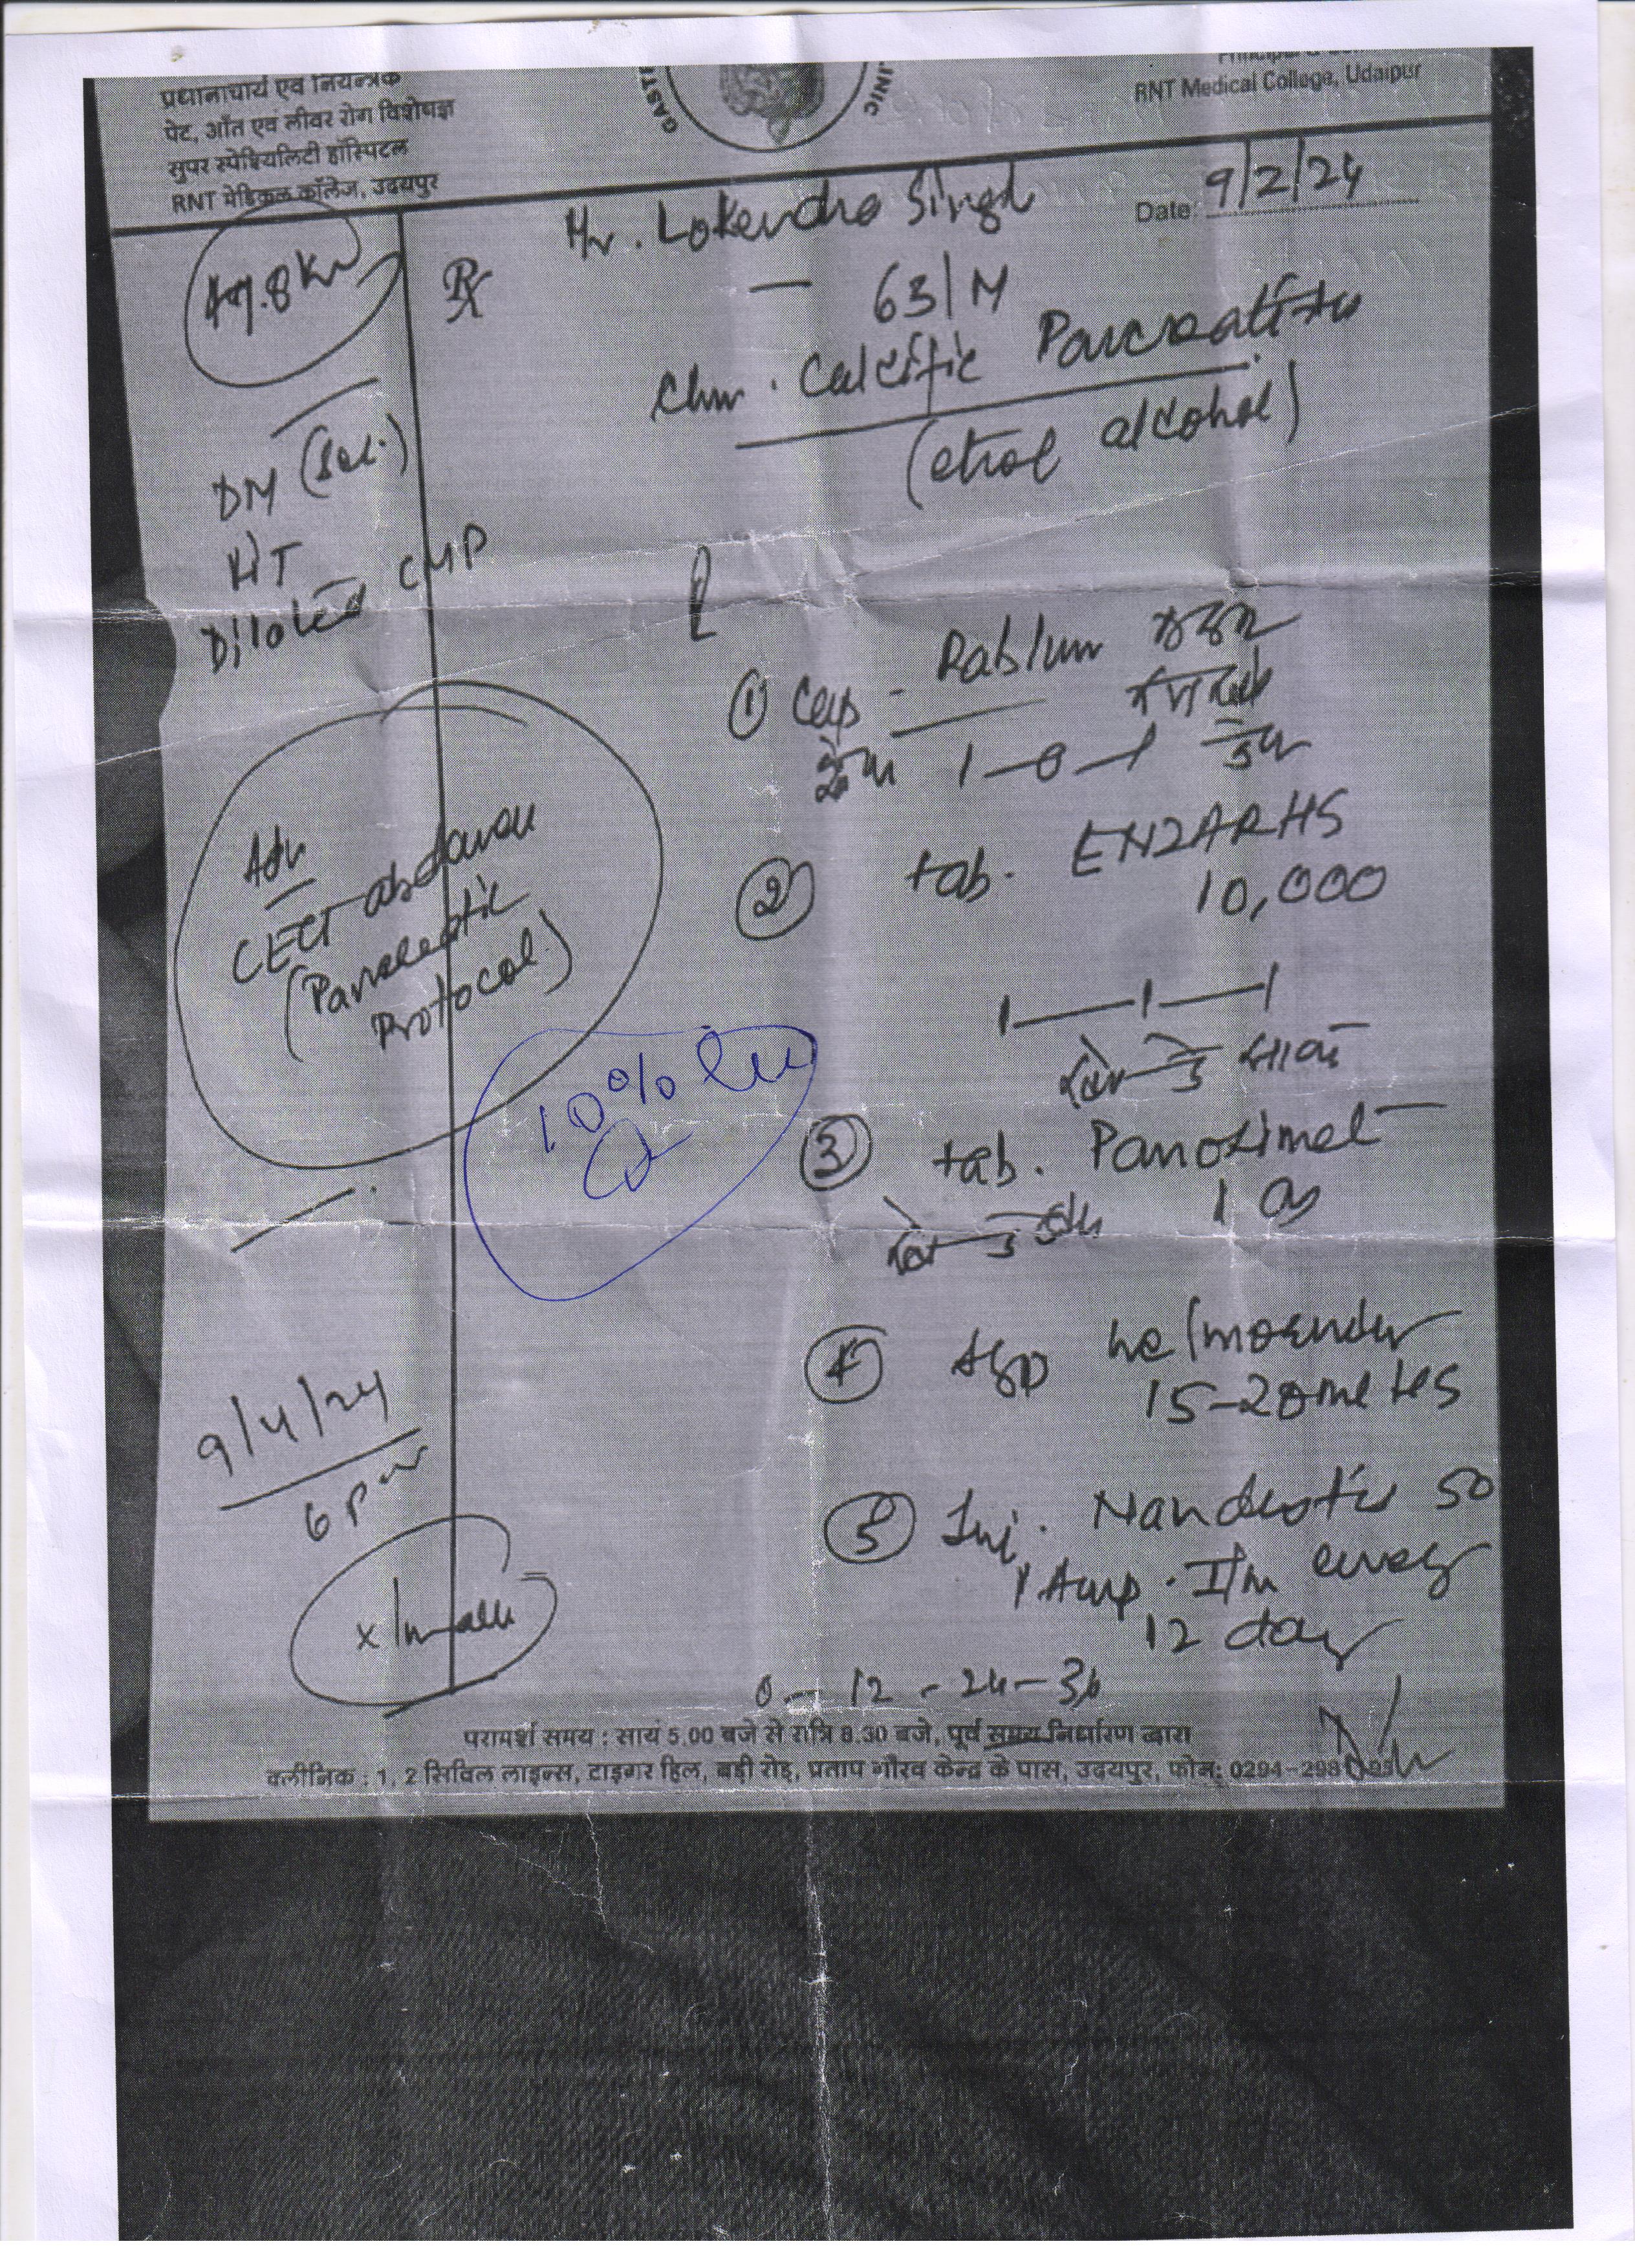 प्रधानाचार्य एवं नियन्त्रक
पेट, आँत एवं लीवर रोग विशेषज्ञ
सुपर स्पेशियलिटी हॉस्पिटल
RNT मेडिकल कॉलेज, उदयपुर
GAST
INIC
RNT Medical College, Udaipur
Date: 9/2/24
Mr. Lokendra Singh
63/M
47.8 Kg
Rx
Chr. Calcific Pancreatitis
(etiol alcohol)
DM
HT
Dilated CMP
① Cap - Rablum
1-0-1
② tab. ENZAR HS
10,000
1-1-1
Adv
CECT abdomen
(Pancreatic
Protocol)
10%
③ tab. Panoximel
1 OD
④ syp
15-20ml HS
⑤ Inj. 50
1 Amp. I/m every
12 day
0 - 12 - 24 - 36
9/4/24
6 pm
परामर्श समय : सायं 5.00 बजे से रात्रि 8.30 बजे, पूर्व समय निर्धारण द्वारा
क्लीनिक : 1, 2 सिविल लाइन्स, टाइगर हिल, बड़ी रोड़, प्रताप गौरव केन्द्र के पास, उदयपुर, फोन: 0294-298